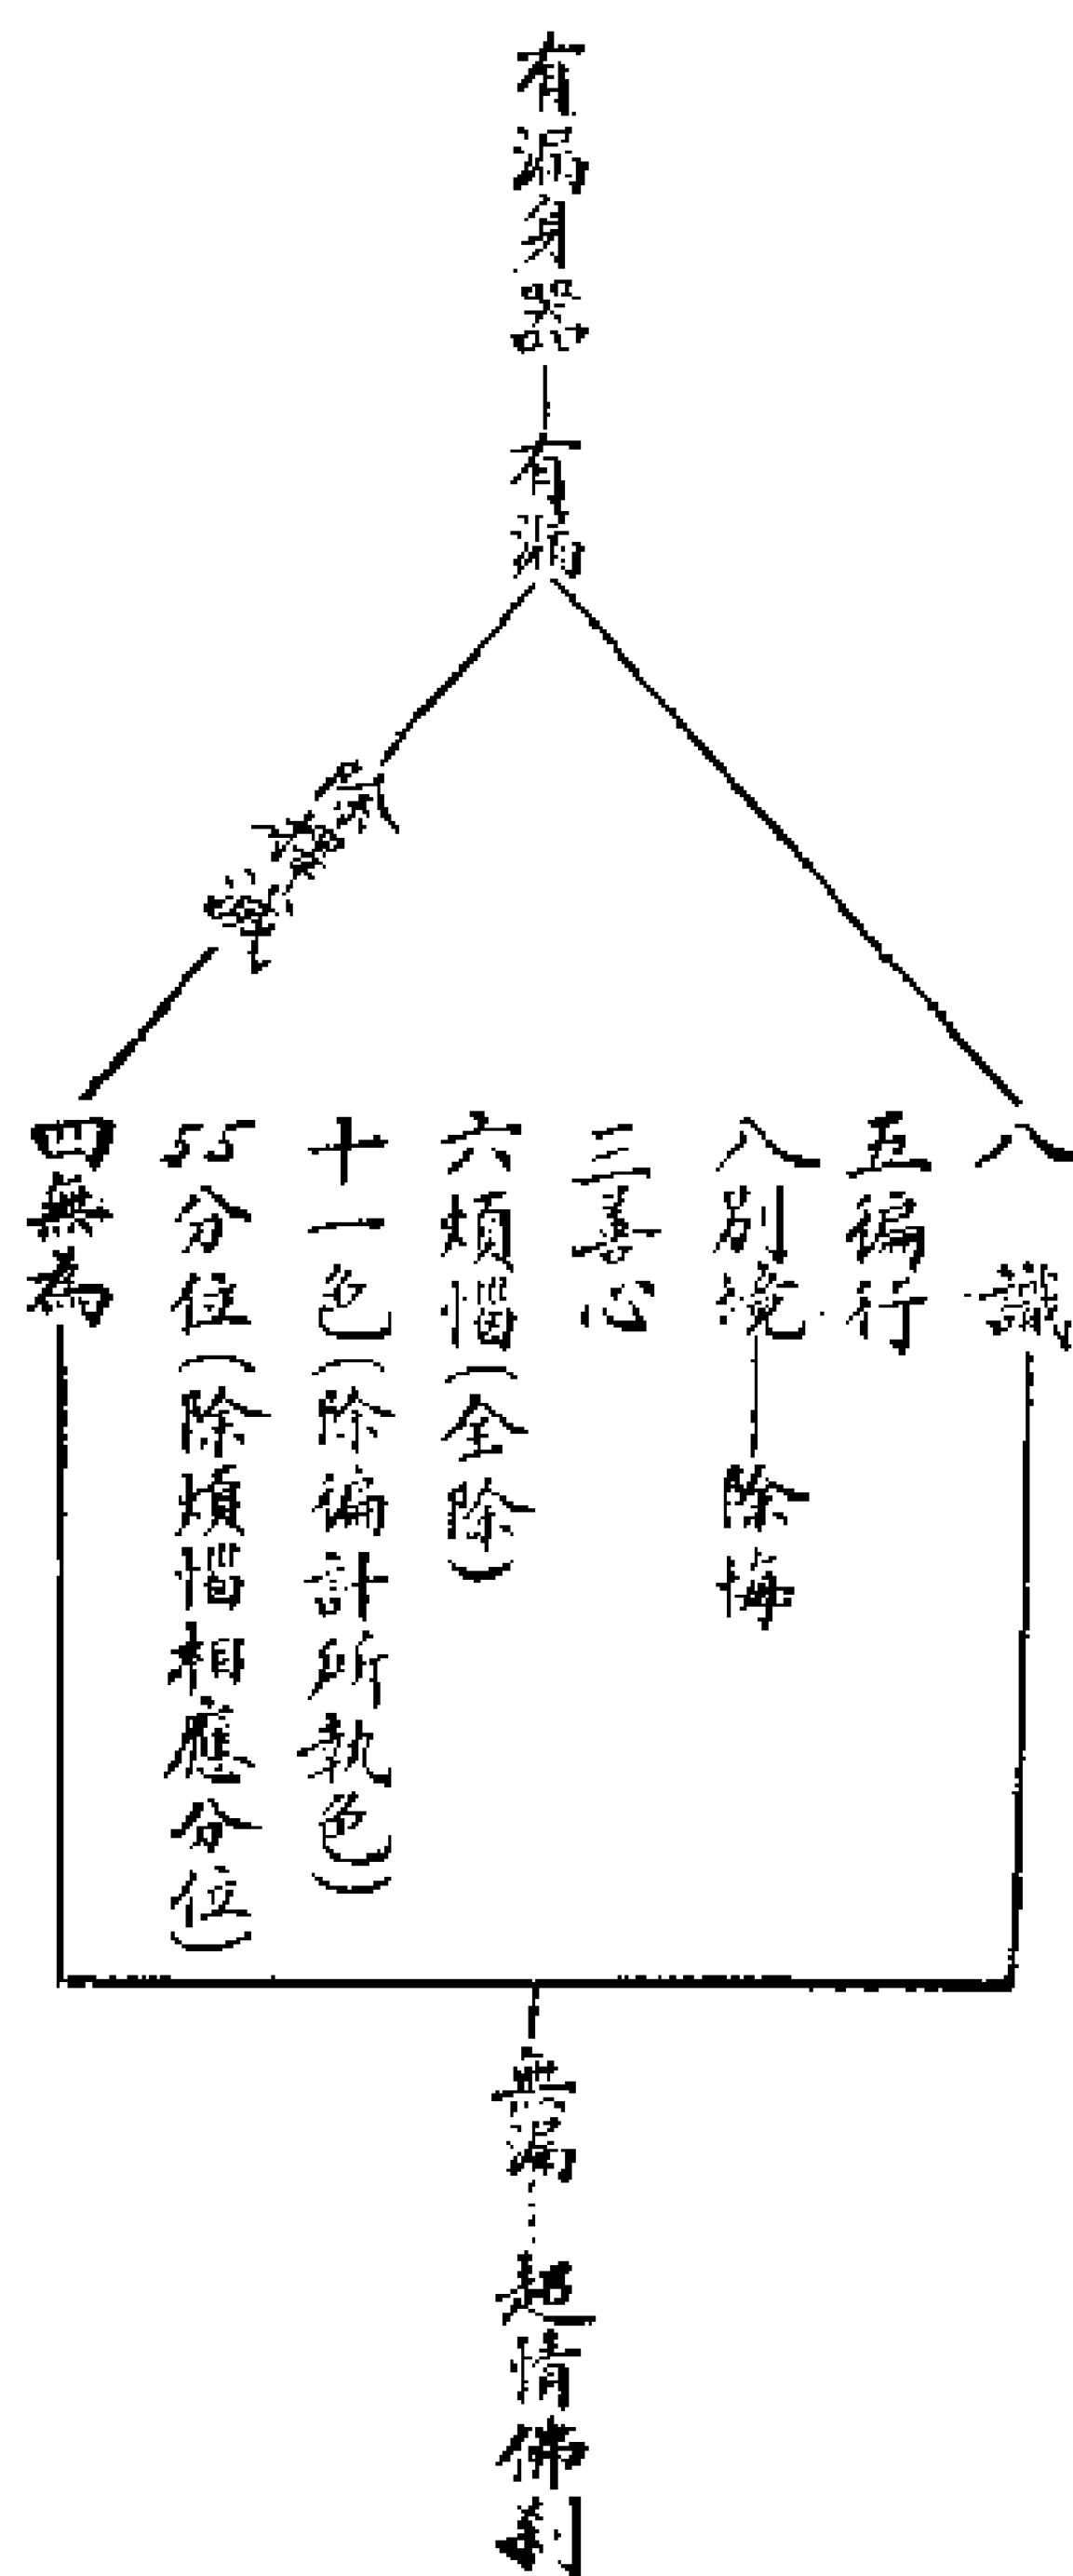 有漏身器
有漏
八識
五徧行
八別境
除悔
三善心
六煩惱(全除)
十一色(除徧計所執色)
55分位(除煩惱相應分位)
四無為
無漏
超情佛刹